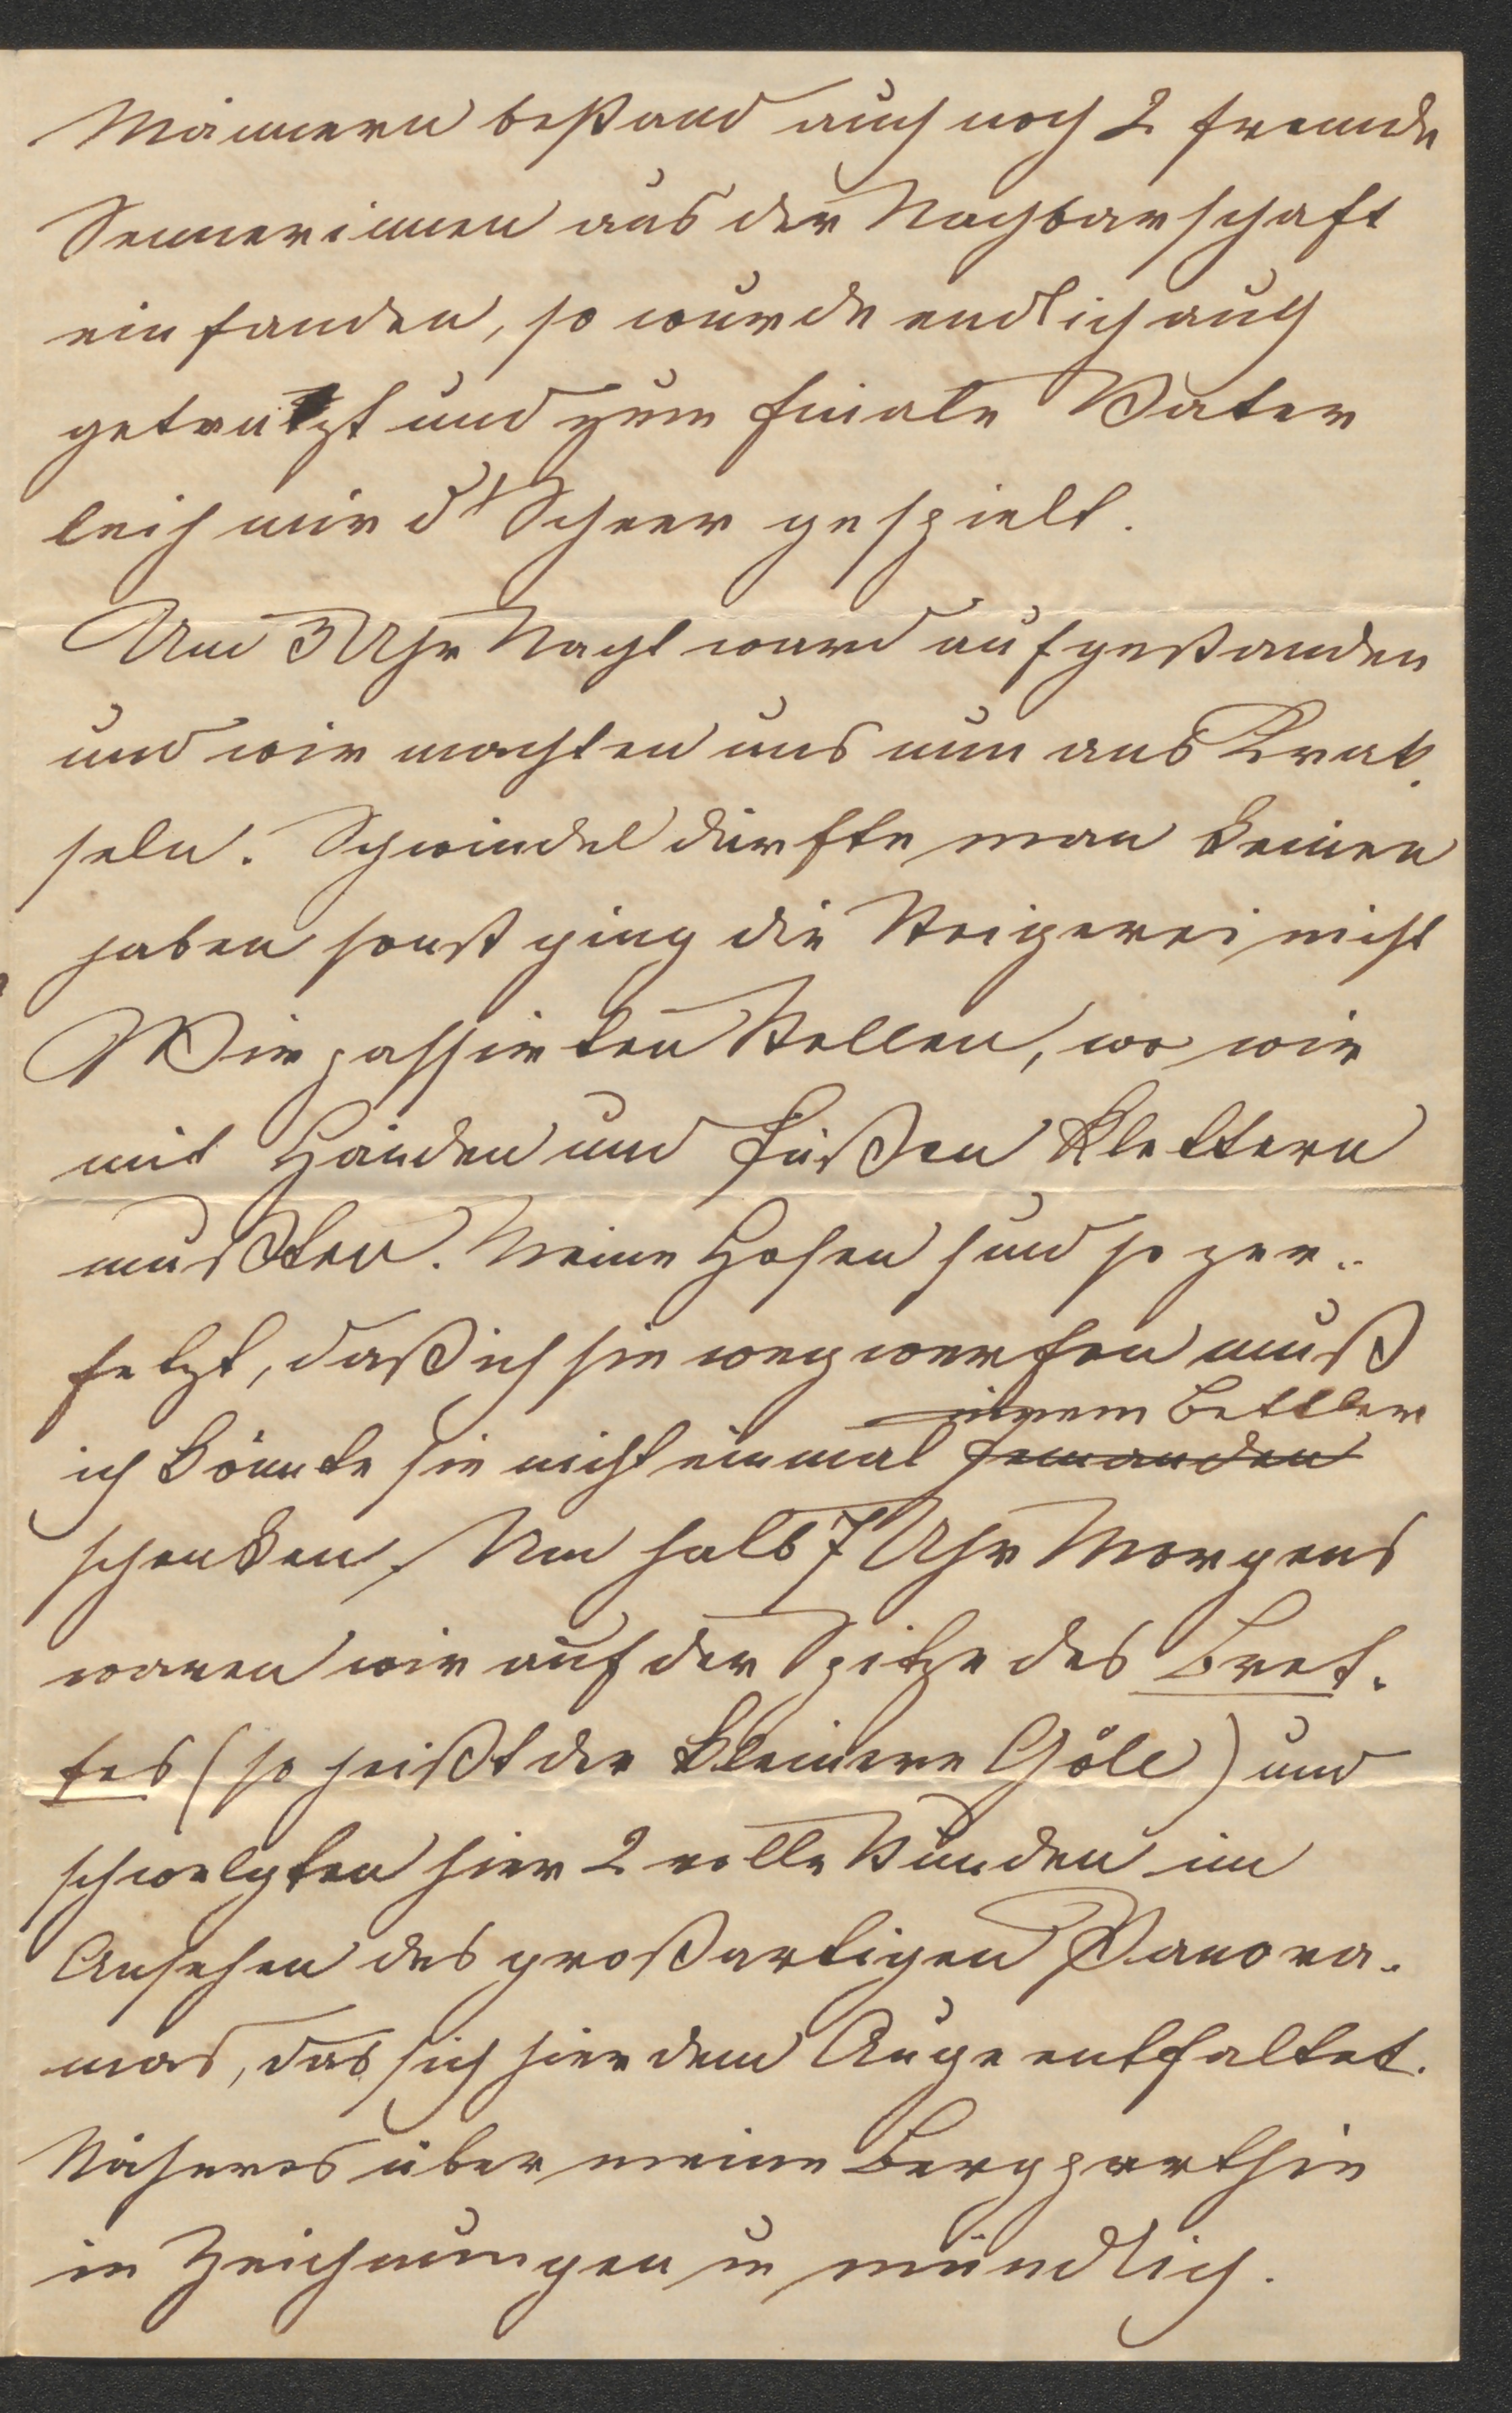 Männern bestand auch noch 2 fremde
Sennerinnen aus der Nachbarschaft
einfanden, so wurde endlich auch
getrutzt und zum Finale Vater
leih mir d' Scheer gespielt.
Um 3 Uhr Nacht ward aufgestanden
und wir machten uns nun ans Krat-
seln. Schwindel durfte man keinen
haben sonst ging die Steigerei nicht
Wir passirten Stellen, wo wir
mit Händen und Füßen klettern
mußten. Meine Hosen sind so zer-
fetzt, daß ich sie wegwerfen muß
einem Bettler
ich könnte sie nicht einmal jemanden
schenken. Um halb 7 Uhr Morgens
waren wir auf der Spitze des Bret-
tes (so heißt der kleinere Göll) und
schwelgten hier 2 volle Stunden im
Ansehen des großartigen Panora-
mas, das sich hier dem Auge entfaltet.
Näheres über meine Bergparthie
in Zeichnungen u mündlich.